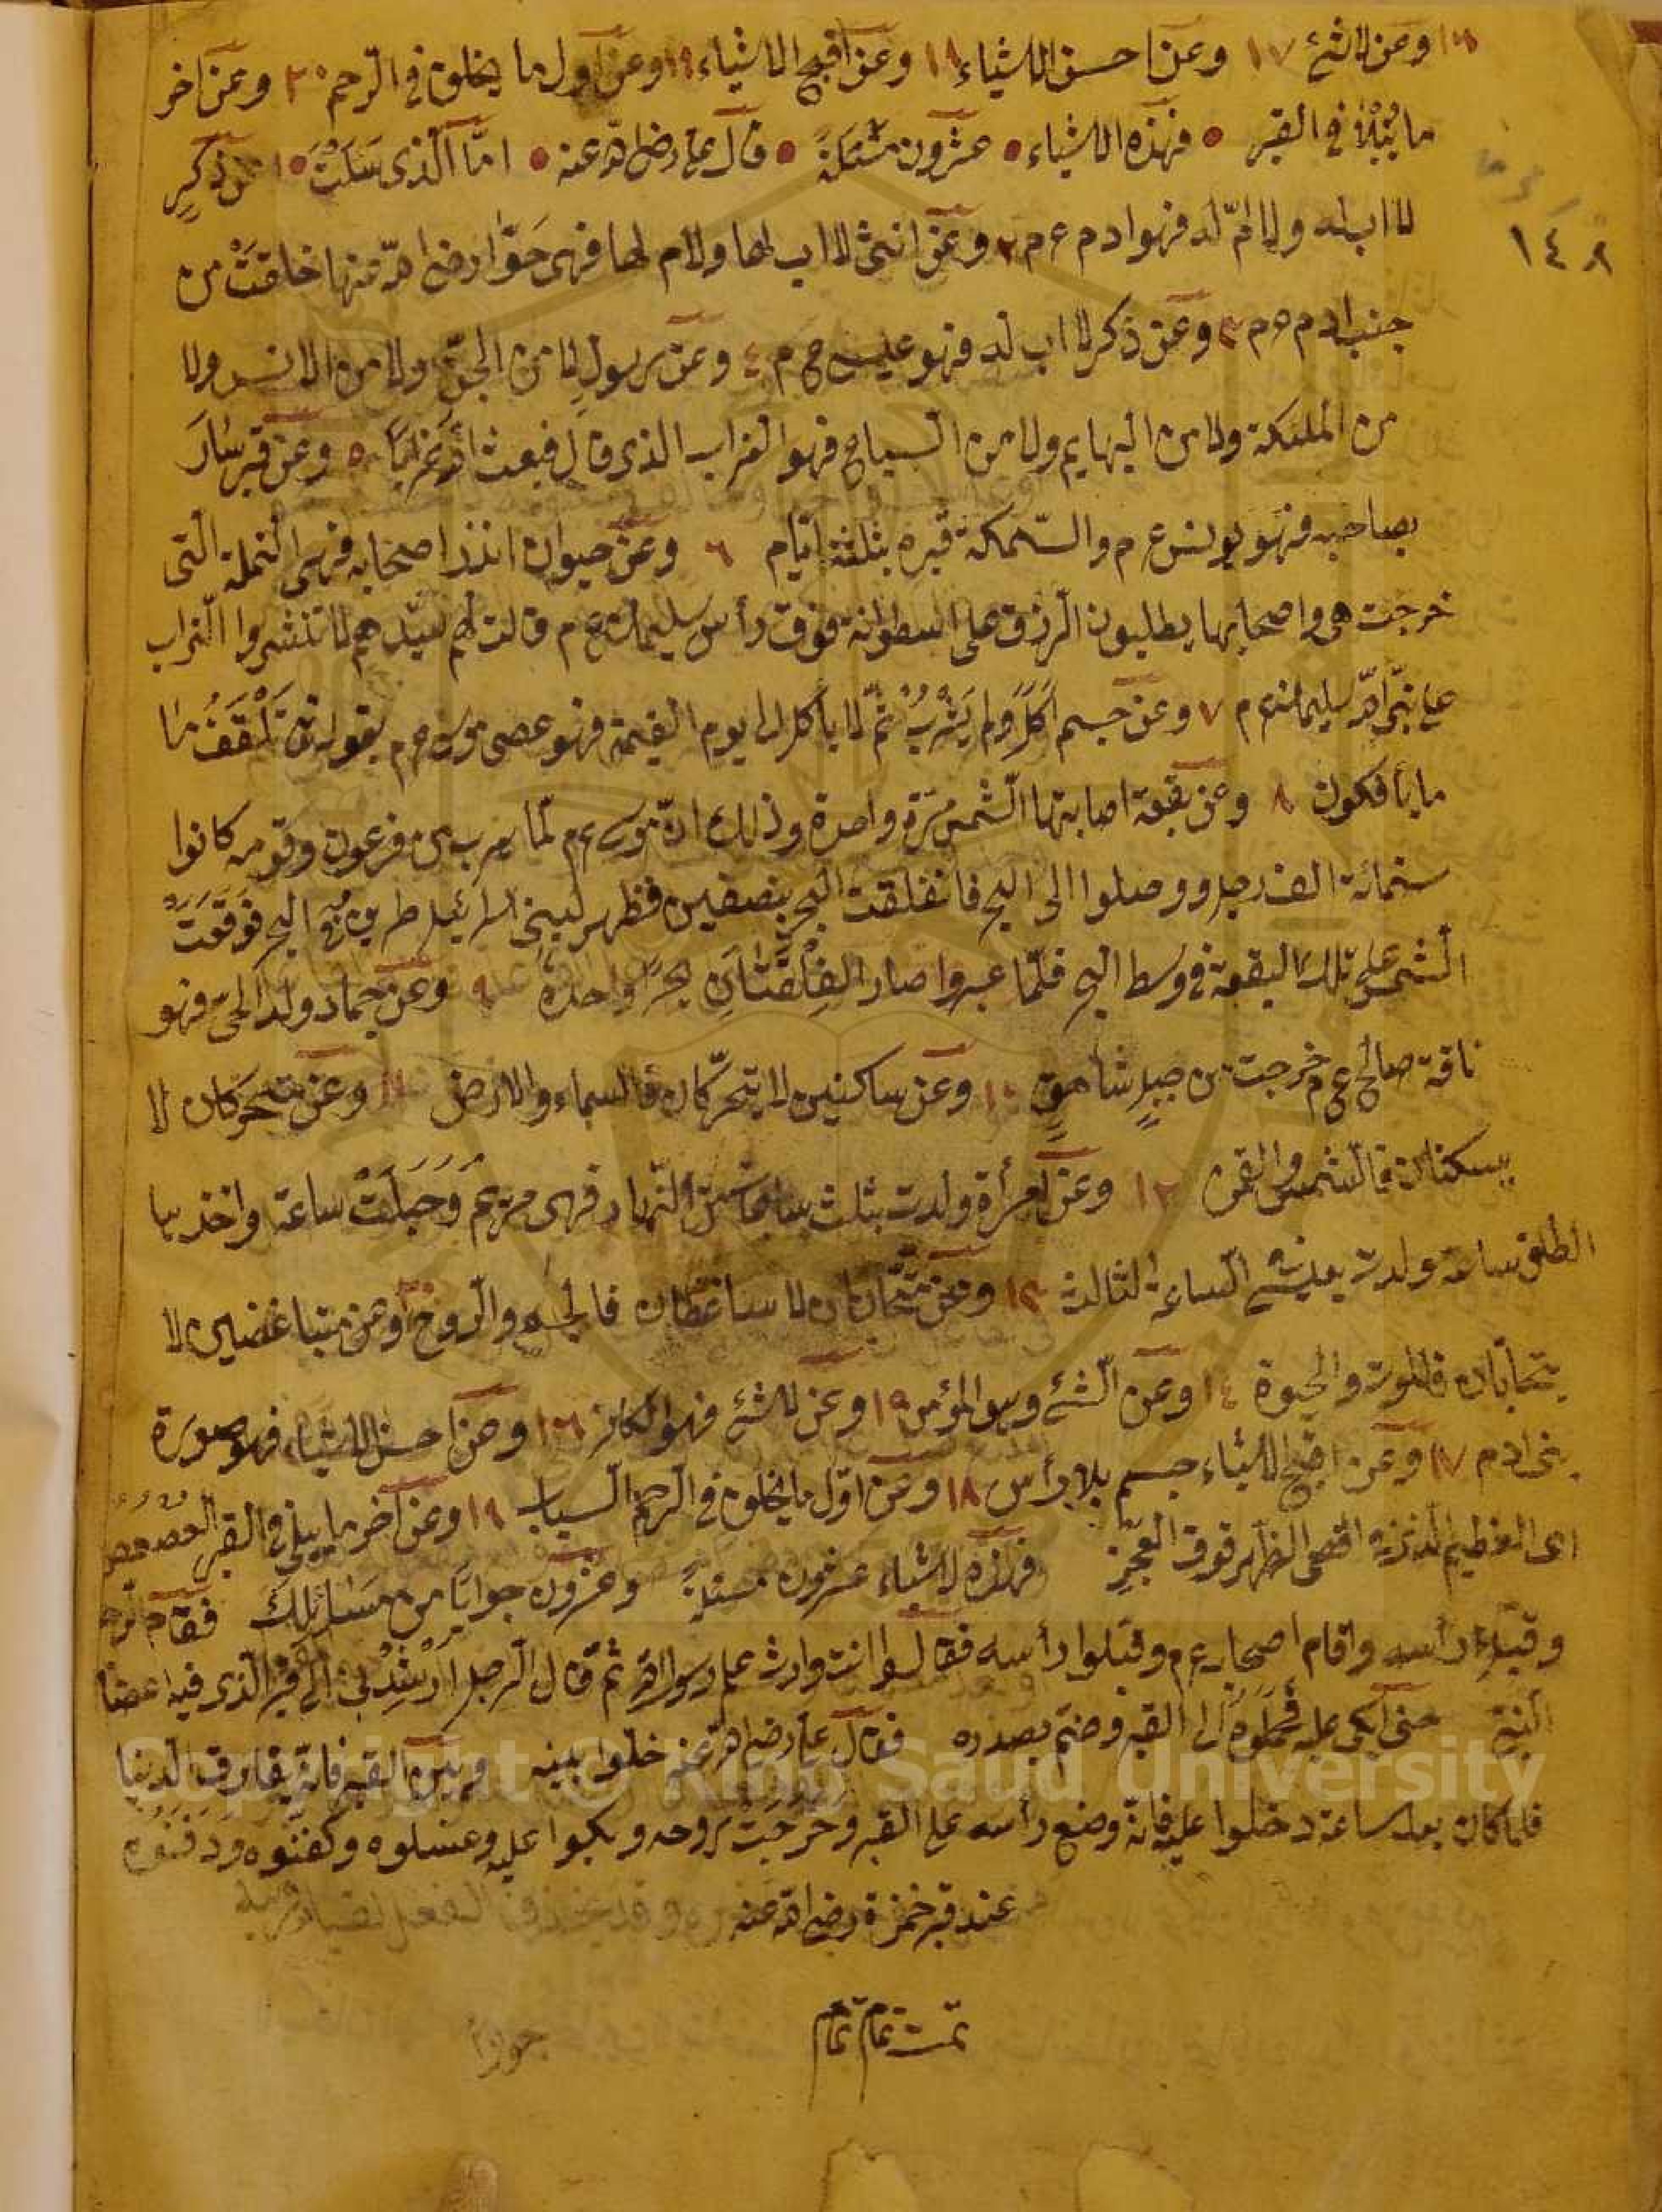 ١٦ وعن لا شئ ١٧ وعن احسن الاشياء ١٨ وعن اقبح الاشياء ١٩ وعن اول ما يخلق في الرحم ٢٠ وعن اخر
ما يُبْلىٰ في القبر • فهذه الاشياء • عشرون مسئلةً • قال علي رضي الله عنه • امّا الّذى سَئَلْتَ • عن ذكرٍ
١٤٨
لا اب له ولا امّ له فهو ادم ع م ٢ وعن انثى لا اب لها ولا ام لها فهى حَوّا رضي الله عنها خلقتْ من
جنب ادم ع م ٣ وعن ذكر لا اب له فهو عيسى ع م ٤ وعن رسولٍ لا من الجنّ ولا من الانس ولا
من الملئكة ولا من البهايم ولا من السباع فهو الغراب الذى قال فبعث الله غرابًا ٥ وعن قبر سَارَ
بصاحبه فهو يونس ع م والسّمكة قبره بثلثة ايّام ٦ وعن حيوان انذر اصحابه فهى النملة الّتى
خرجت هى واصحابها يطلبون الرزق على اسطوانة فوق رأس سليمان ع م قالت لهم سيّدهم لا تنشروا التراب
على نبىّ الله سليمان ع م ٧ وعن جسم اَكَلَ ولم يَشْرَبْ ثمّ لا يأكل الى يوم القيمة فهو عصى موسى ع م بقوله تع تَلْقَفُ مٰا
ما يأفكون ٨ وعن بقعة اصابتها الشّمس مرّة واحدة وذلك انّ موسى ع م لمّا هرب من فرعون وقومه كانوا
ستمائة الف رجل ووصلوا الى البحر فانفلقت البحر بنصفين فظهر لبنى اسرائيل طريق فى البحر فوَقَعَتْ
الشّمس على تلك البقعة في وسط البحر فلمّا عبروا صار الفِلْقَتَانِ بحرًا واحدة ٩ وعن جماد ولد الحىّ فهو
ناقة صالح ع م خرجت من جبلٍ شامقٍ ١٠ وعن ساكنين لا يتحرّكان فالسماء والارض ١١ وعن متحركان لا
يسكنان فالشمس والقمر ١٢ وعن امرأة ولدت بثلث ساعات من النّهار فهى مريم وَحَبِلَتْ ساعة واخذ بها
الطلق ساعة ولدت بعيسى الساعة الثالث ١٣ وعن متحابّان لا يباغضان فالجسم والرّوح وعن متباغضين لا
يتحابّان فالموت والحيوة ١٤ وعن الشّئ وهو المؤمن ١٥ وعن لا شئ فهو الكافر ١٦ وعن احسن الاشياء فهو صورة
بنى ادم ١٧ وعن اقبح الاشياء جسم بلا رأس ١٨ وعن اوّل ما يخلق في الرحم السباب ١٩ وعن آخر ما يبلى في القبر العُصْعُص
اى العظيم الّذى اقصى الظهر فوق العَجُز فهذه الاشياء عشرون مسئلةً وعشرون جوابًا من مَسَائلِكَ فقام
وقبّل رأسه واقام اصحابه ع م وقبلوا رأسه فقالوا انت وارث علم رسول الله ثمّ قال الرجل ارْشِدْنى الى قبر الّذى فيه اعضا
النبىّ حتى ابكى عليه فحملوه الى القبر وضمّ بصدره فقال على رضي الله عنه خلّوا بينه وبين القبر فانّه يفارق الدنيا
فلما كان بعد ساعة دخلوا عليه فانّه وضع رأسه على القبر وخرجَت روحه وبكوا عليه وغسلوه وكفنوه ودَفَنُوه
عند قبر حمزة رضي الله عنه
تمت تمام تمام
Copyright © King Saud University